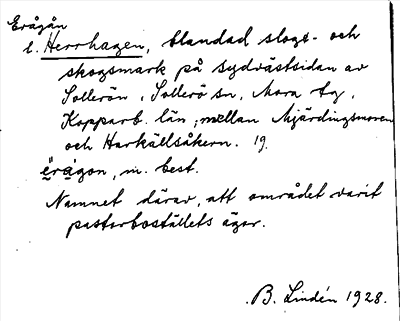 Erågån
l. Herrhagen, blandad slogs- och
skogsmark på sydvästsidan av
Sollerön, Sollerö sn, Mora tg,
Kopparb. län, mellan Mjärdingsmoren
och Harkällsåkern. 19.
ērāgon, m. best.
Namnet därav, att området varit
pastorboställets ägor.
B. Lindén 1928.